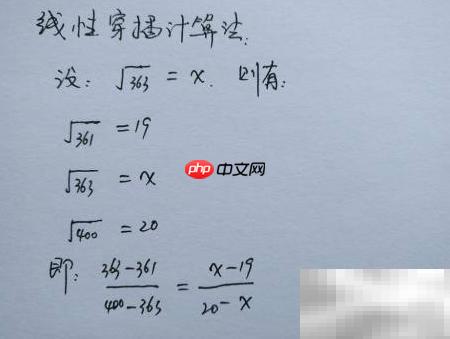 线性穿插计算法:
设: √363 = x. 则有:
√361 = 19
√363 = x
php 中文网
√400 = 20
即: (363-361)/(400-363) = (x-19)/(20-x)